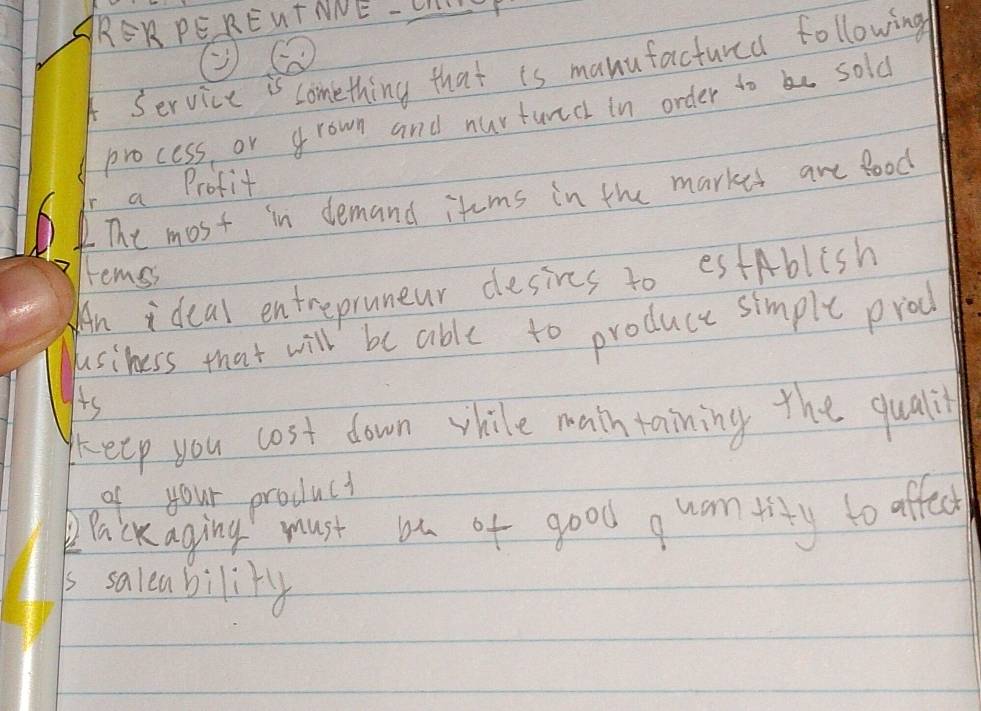 RER PEREUTNNE -
Service is something that is manufactured following
process, or grown and nurtured in order to be sold
r a Profit
The most in demand items in the market are food
tems
An ideal entrepruneur desires to estAblish
usiness that will be able to produce simple prod
ts
Keep you cost down while maintaining the qualit
of your product
Packaging must be of good quantity to affect
s saleability